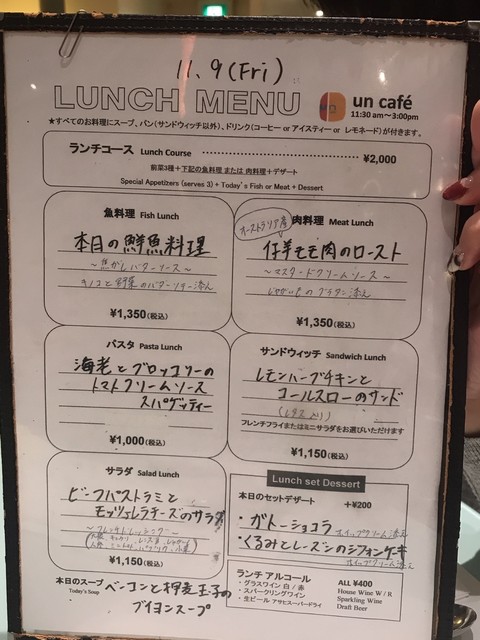 11.9(Fri)
LUNCH MENU
un café
11:30 am～3:00pm
★すべてのお料理にスープ、パン(サンドウィッチ以外)、ドリンク(コーヒー or アイスティー or レモネード)が付きます。
ランチコース Lunch Course ¥2,000
前菜3種＋下記の魚料理 または 肉料理＋デザート
Special Appetizers (serves 3) + Today's Fish or Meat + Dessert
魚料理 Fish Lunch
本日の鮮魚料理
～焦がしバターソース～
キノコと野菜のバターソテー添え
¥1,350(税込)
オーストラリア産
肉料理 Meat Lunch
仔羊モモ肉のロースト
～マスタードクリームソース～
じゃがいものグラタン添え
¥1,350(税込)
パスタ Pasta Lunch
海老とブロッコリーの
トマトクリームソース
スパゲッティー
¥1,000(税込)
サンドウィッチ Sandwich Lunch
レモンハーブチキンと
コールスローのサンド
(レタス入り)
フレンチフライまたはミニサラダをお選びいただけます
¥1,150(税込)
サラダ Salad Lunch
ビーフパストラミと
モッツァレラチーズのサラダ
～フレンチドレッシング～
¥1,150(税込)
Lunch set Dessert
本日のセットデザート +¥200
・ガトーショコラ
ホイップクリーム添え
・くるみとレーズンのシフォンケーキ
ホイップクリーム添え
本日のスープ
Today's Soup
ベーコンと押麦玉子の
ブイヨンスープ
ランチ アルコール ALL ¥400
・グラスワイン 白 / 赤 House Wine W / R
・スパークリングワイン Sparkling Wine
・生ビール アサヒスーパードライ Draft Beer